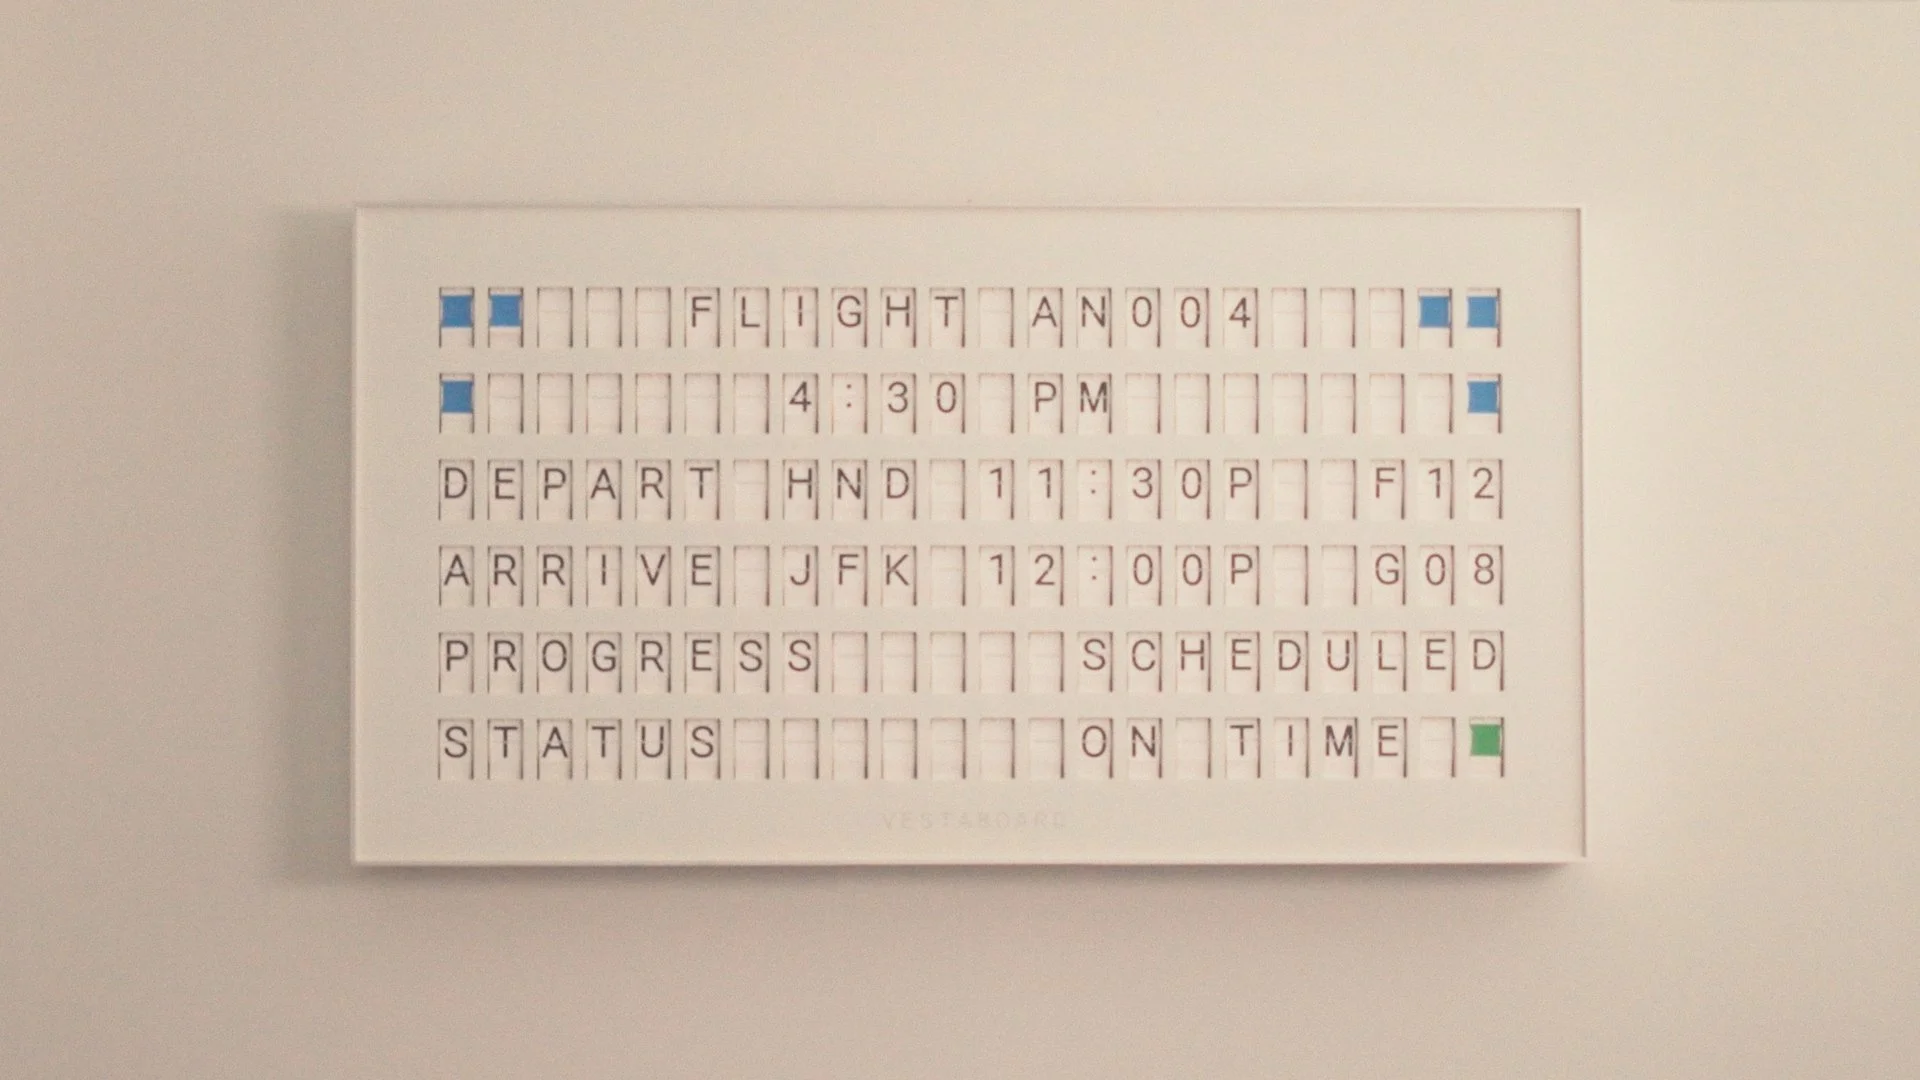 FLIGHT AN004
4:30 PM
DEPART HND 11:30P F12
ARRIVE JFK 12:00P G08
PROGRESS SCHEDULED
STATUS ON TIME
VESTABOARD